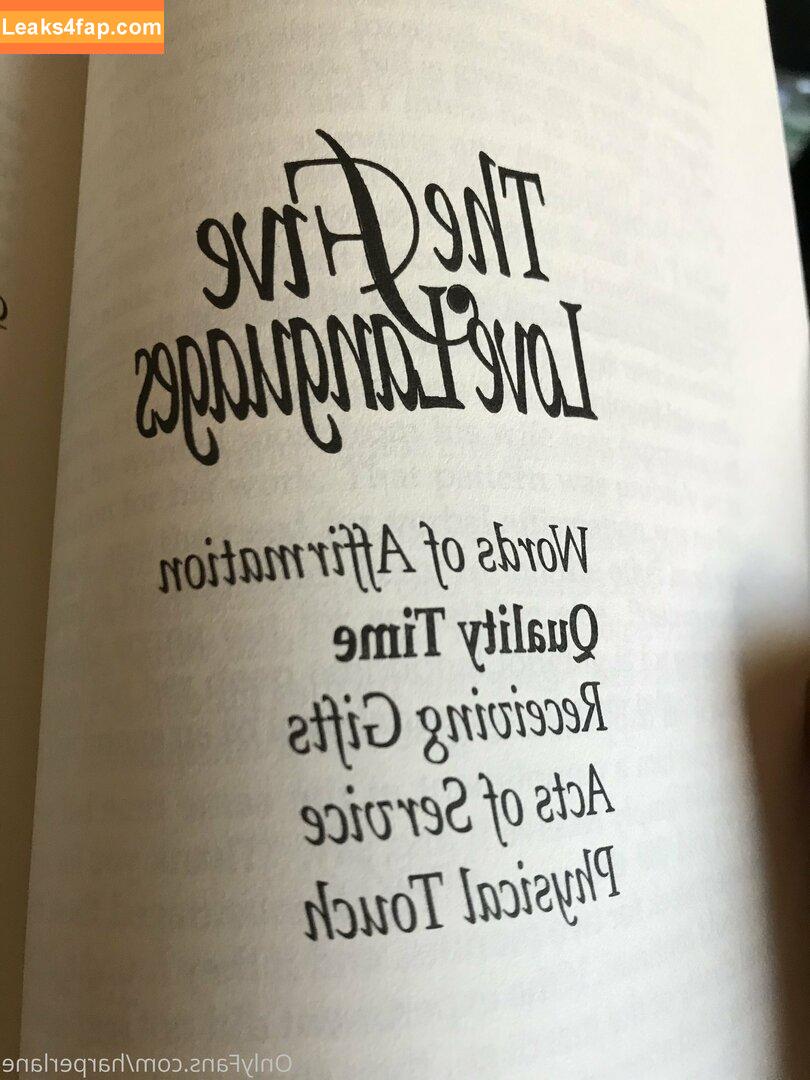 Leaks4fap.com
The Five
Love Languages
Words of Affirmation
Quality Time
Receiving Gifts
Acts of Service
Physical Touch
OnlyFans.com/harperlane